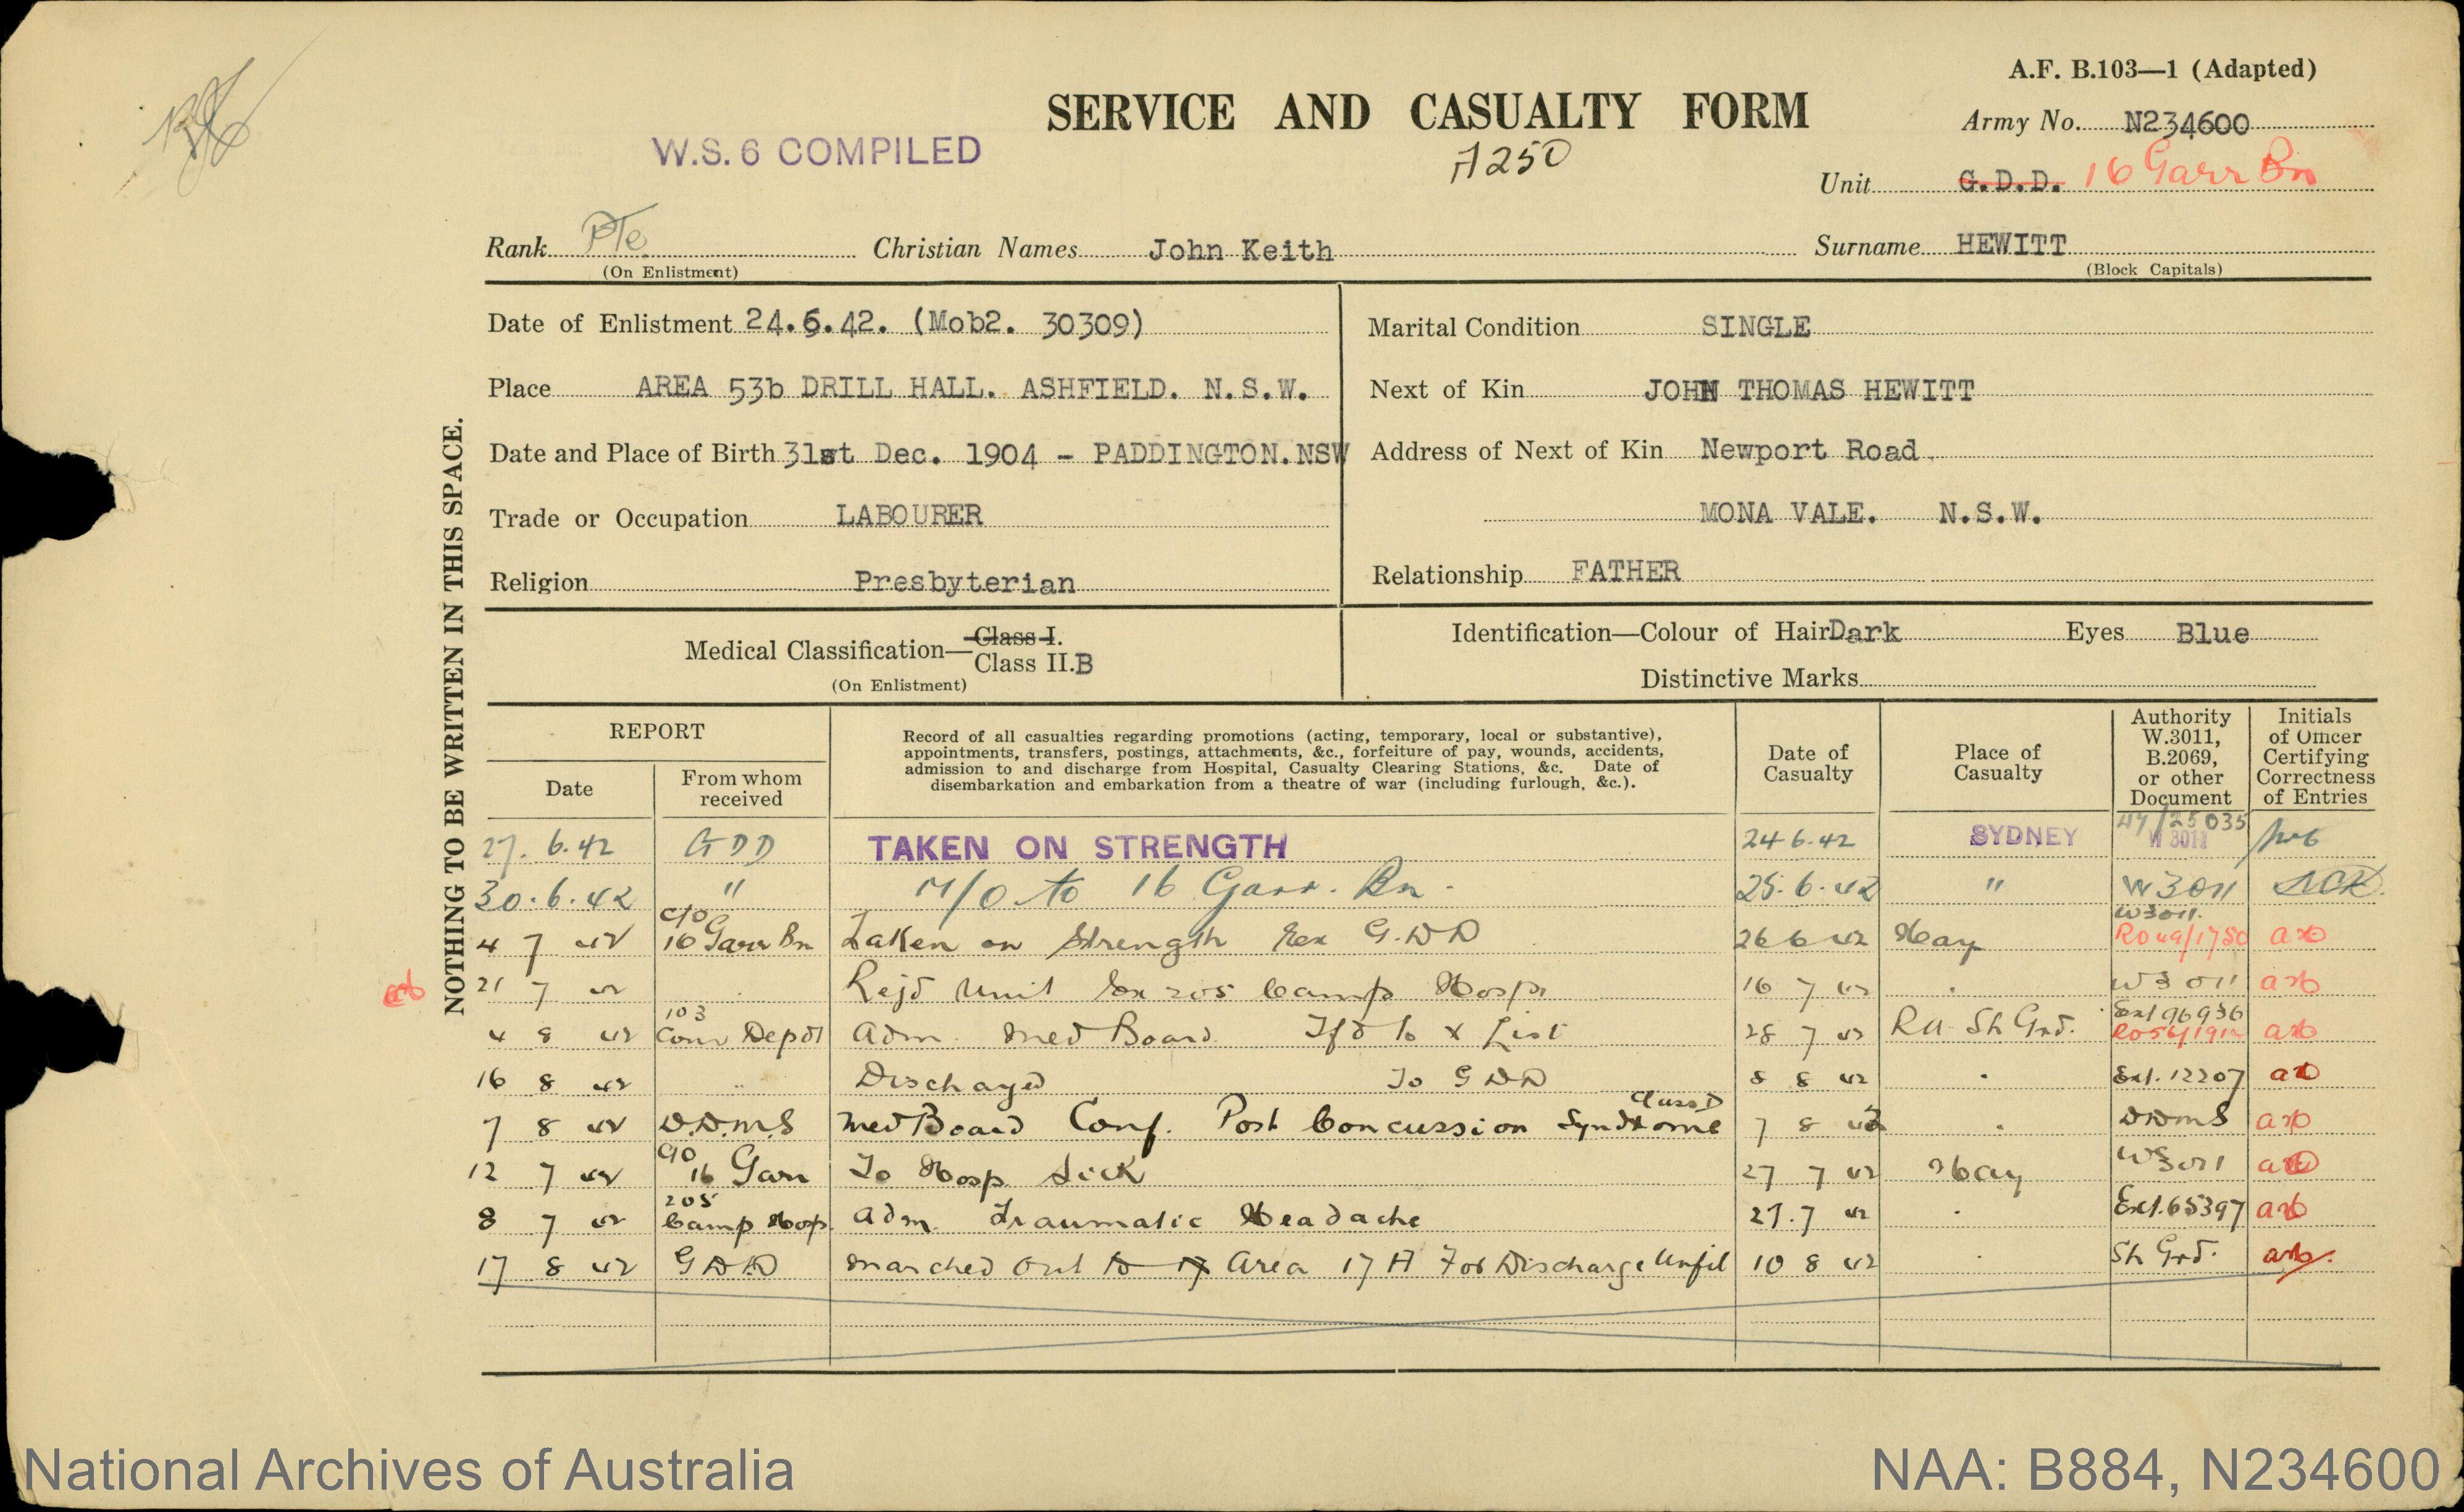 A.F. B.103—1 (Adapted)
SERVICE AND CASUALTY FORM
W.S. 6 COMPILED
A250
Army No. N234600
Unit G.D.D. 16 Garr Bn
Rank Pte Christian Names John Keith Surname HEWITT
(On Enlistment) (Block Capitals)
NOTHING TO BE WRITTEN IN THIS SPACE.
Date of Enlistment 24.6.42. (Mob2. 30309)
Place AREA 53b DRILL HALL. ASHFIELD. N.S.W.
Date and Place of Birth 31st Dec. 1904 - PADDINGTON.NSW
Trade or Occupation LABOURER
Religion Presbyterian
Marital Condition SINGLE
Next of Kin JOHN THOMAS HEWITT
Address of Next of Kin Newport Road
MONA VALE. N.S.W.
Relationship FATHER
Medical Classification— Class I.
Class II.B
(On Enlistment)
Identification—Colour of Hair Dark Eyes Blue
Distinctive Marks
REPORT
Date
From whom received
Record of all casualties regarding promotions (acting, temporary, local or substantive),
appointments, transfers, postings, attachments, &c., forfeiture of pay, wounds, accidents,
admission to and discharge from Hospital, Casualty Clearing Stations, &c. Date of
disembarkation and embarkation from a theatre of war (including furlough, &c.).
Date of Casualty
Place of Casualty
Authority W.3011, B.2069, or other Document
Initials of Officer Certifying Correctness of Entries
27.6.42 GDD TAKEN ON STRENGTH 24.6.42 SYDNEY 47/25035 W 3011
30.6.42 " M/O to 16 Garr. Bn. 25.6.42 " W3011
4 7 42 C/O 16 Garr Bn Taken on Strength Ex G.D.D 26 6 42 Hay W3011. RO49/1750
21 7 42 Rejd Unit Ex 205 Camp Hosp 16 7 42 W3011
4 8 42 103 Con Depot Adm. Med Board Tfd to X List 28 7 42 RA Sh Grd. Ext 96936
16 8 42 Discharged To GDD 8 8 42 Ext. 12207
7 8 42 D.D.M.S Med Board Conf. Post Concussion Syndrome Class D 7 8 42 DDMS
12 7 42 C/O 16 Garr To Hosp Sick 27 7 42 Hay W3011
8 7 42 205 Camp Hosp. Adm. Traumatic Headache 27.7 42 Ext. 65397
17 8 42 GDD Marched Out to 17 Area 17 A For Discharge Unfit 10 8 42 Sh Grd.
National Archives of Australia
NAA: B884, N234600